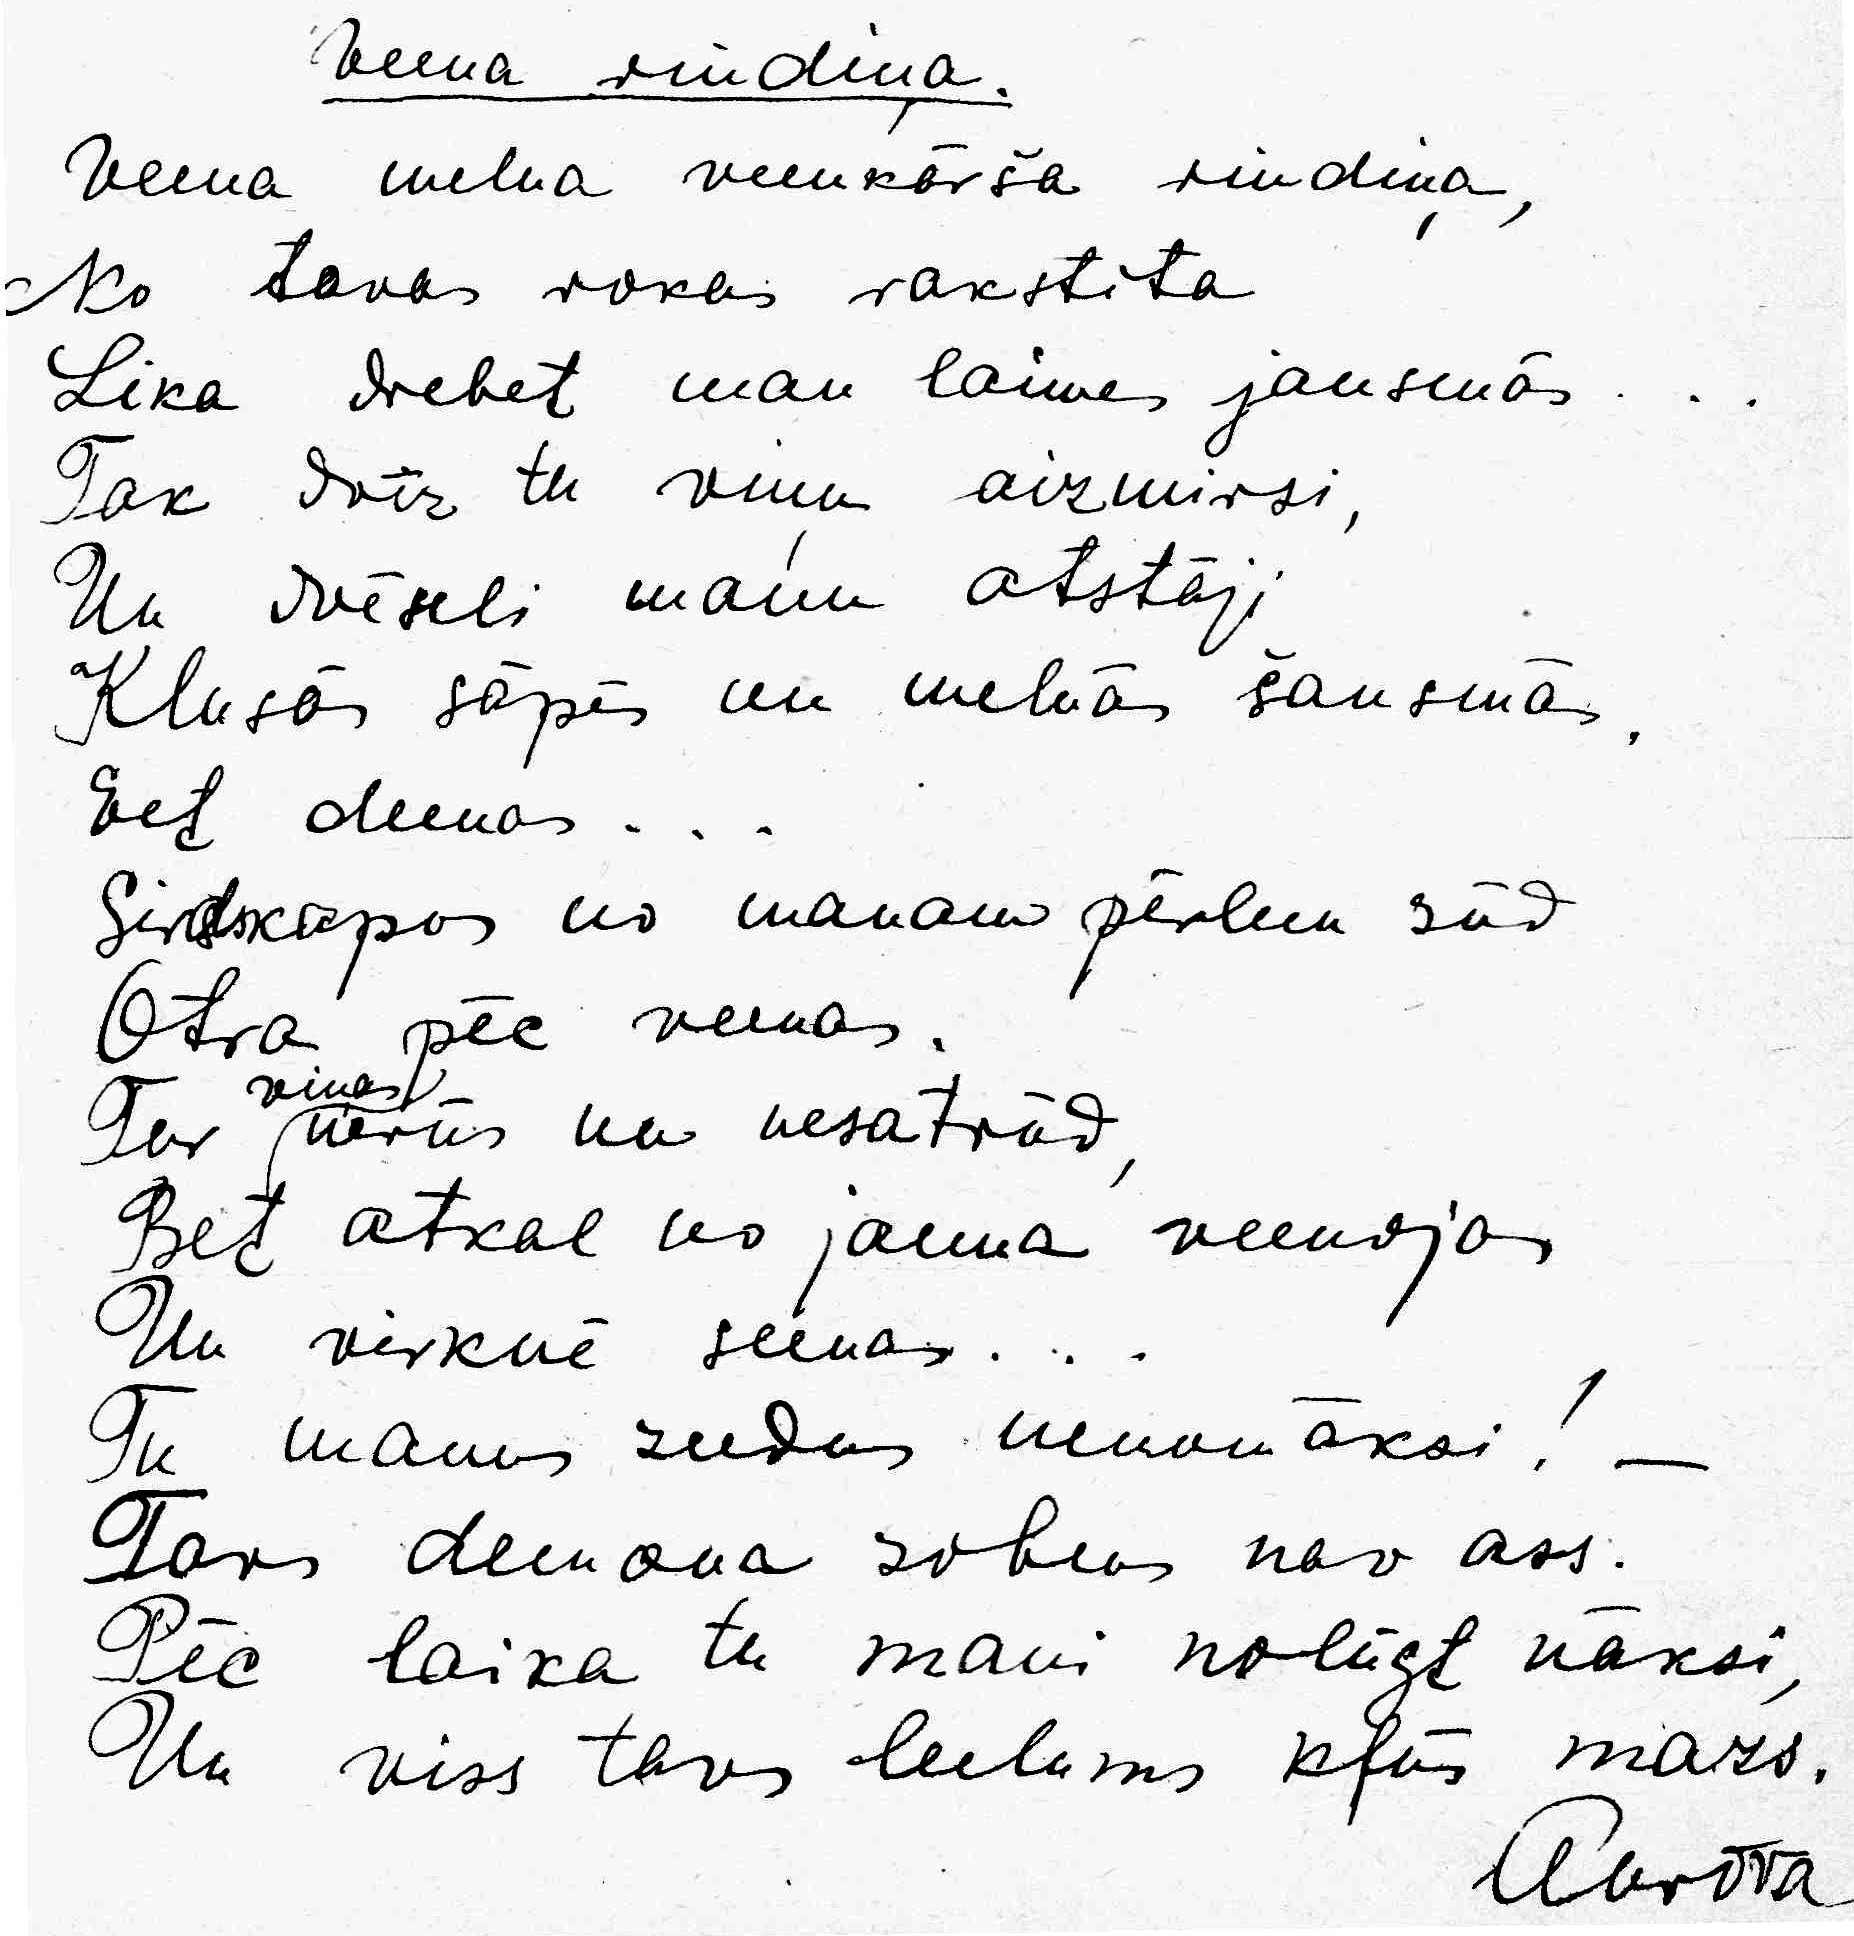 Veena rindiņa.
Veena melna veenkārša rindiņa,
No tavas rokas rakstita
Lika drebet man laimes jausmās . . .
Tak drīz tu viņu aizmirsi,
Un dvēseli manu atstāji
Klusās sāpēs un melnās šausmās.
Eet deenas . . .
Sirdskāpas no manam pērlem zūd
Otra pēc veenas.
Tur viņas mērūs un nesatrūd,
Bet atkal no jauna veenojas
Un virknē seenas . . .
Tu manus zeedus nenomāksi! —
Tavs deemona zobens nav ass.
Pēc laika tu mani nolūgt nāksi,
Un viss tavs leelums kļūs mazs.